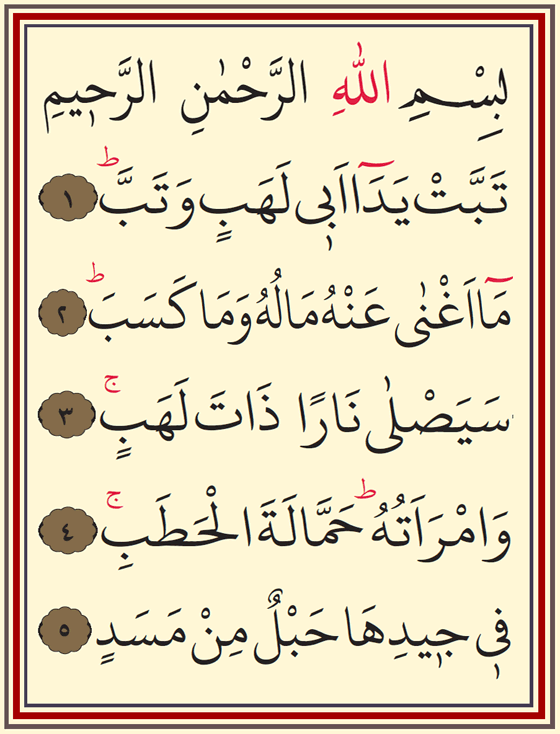 بِسْمِ اللّٰهِ الرَّحْمٰنِ الرَّح۪يمِ
تَبَّتْ يَدَٓا اَب۪ي لَهَبٍ وَتَبَّۜ ﴿١﴾
مَٓا اَغْنٰى عَنْهُ مَالُهُ وَمَا كَسَبَؕ ﴿٢﴾
سَيَصْلٰى نَارًا ذَاتَ لَهَبٍۚ ﴿٣﴾
وَامْرَاَتُهُؕ حَمَّالَةَ الْحَطَبِۚ ﴿٤﴾
ف۪ي ج۪يدِهَا حَبْلٌ مِنْ مَسَدٍ ﴿٥﴾